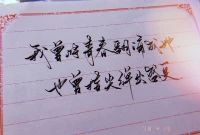 我曾将青春翻涌成她
也曾指尖弹出盛夏